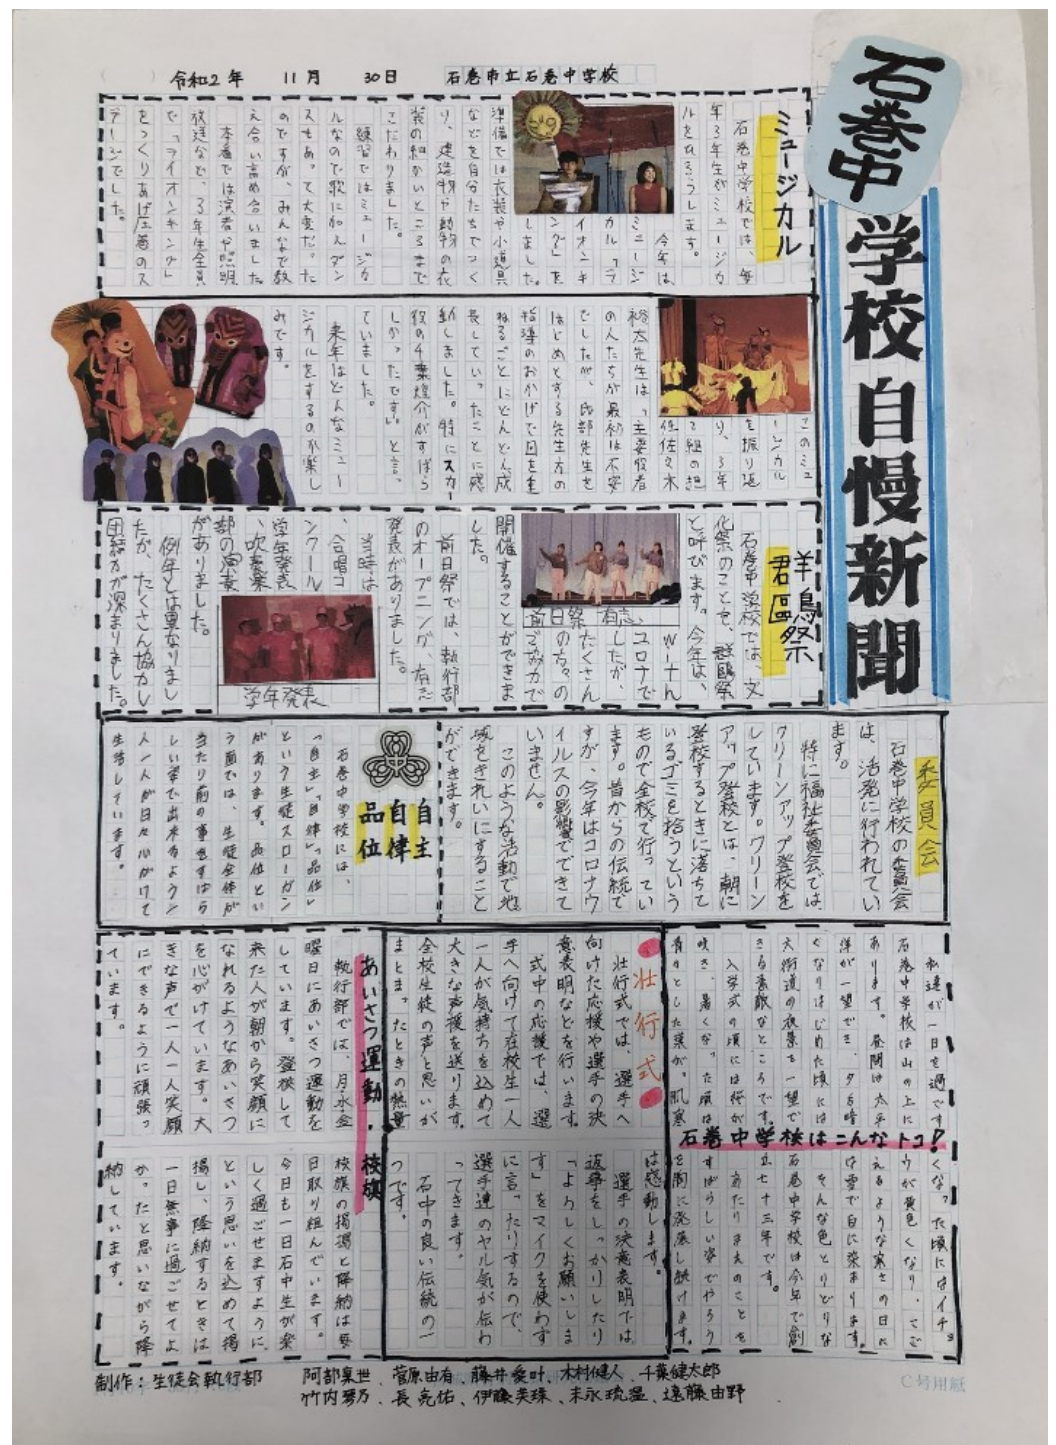 石巻中
学校自慢新聞
令和2年 11月 30日 石巻市立石巻中学校
ミュージカル
石巻中学校では、毎
年3年生がミュージカ
ルをひろうします。
今年は、
ミュージ
カル「ラ
イオンキ
ング」を
しました。
準備では衣装や小道具
などを自分たちでつく
り、建造物や動物の衣
装の細かいところまで
こだわりました。
練習ではミュージカ
ルなので歌に加えダン
スもあって大変だった
のですが、みんなで教
え合い高め合いました。
本番では演者や照明
放送などで、3年生全員
で「ライオンキング」
をつくりあげ圧巻のス
テージでした。
このミュ
ージカル
を振り返
り、3年
2組の担
任佐々木
裕太先生は「主要役者
の人たちが最初は不安
でしたが、阿部先生を
はじめとする先生方の
指導のおかげで回を重
ねるごとにどんどん成
長していったことに感
動しました。特にスカー
役の千葉煌介がすばら
しかったです。」と言っ
ていました。
来年はどんなミュー
ジカルをするのか楽し
みです。
群鷗祭
石巻中学校では、文
化祭のことを、群鷗祭
と呼びます。今年は、
withコ
ロナで
したが、
たくさん
の方々の
ご協力で
開催することができま
した。
前日祭 有志
前日祭では、執行部
のオープニング、有志
発表がありました。
当時は
、合唱コ
ンクール
学年発表
、吹奏楽
部の演奏
がありました。
例年とは異なりまし
たが、たくさん協力し
団結力が深まりました。
学年発表
委員会
石巻中学校の委員会
は、活発に行われてい
ます。
特に福祉委員会では
クリーンアップ登校を
しています。クリーン
アップ登校とは、朝に
登校するときに落ちて
いるゴミを拾うという
もので全校で行ってい
ます。昔からの伝統で
すが、今年はコロナウ
イルスの影響でできて
いません。
このような活動で地
域をきれいにすること
ができます。
自主
自律
品位
石巻中学校には、
「自主」「自律」「品位」
という生徒スローガン
があります。品位とい
う面では、生徒全体が
当たり前の事をすばら
しい姿で出来るよう一
人一人が日々心がけて
生活しています。
石巻中学校はこんなトコ!
私達が一日を過ごす
石巻中学校は山の上に
あります。昼間は太平
洋が一望でき、夕方暗
くなりはじめた頃には
大街道の夜景を一望で
きる素敵なところです。
入学式の頃には桜が
咲き、暑くなった頃は
青々とした葉が。肌寒
くなった頃にはイチョ
ウが黄色くなり、こご
えるような寒さの日に
は雪で白に染まります。
そんな色とりどりな
石巻中学校は今年で創
立七十三年です。
あたりまえのことを
すばらしい姿でやろう
を胸に発展し続けます。
壮行式
壮行式では、選手へ
向けた応援や選手の決
意表明などを行います。
式中の応援では、選
手へ向けて在校生一人
一人が気持ちを込めて
大きな声援を送ります。
全校生徒の声と思いが
まとまったときの熱量
は感動します。
選手の決意表明では
返事をしっかりしたり
「よろしくお願いしま
す」をマイクを使わず
に言ったりするので、
選手達のヤル気が伝わ
ってきます。
石中の良い伝統の一
つです。
あいさつ運動・校旗
執行部では、月水金
曜日にあいさつ運動を
しています。登校して
来た人が朝から笑顔に
なれるようなあいさつ
を心がけています。大
きな声で一人一人笑顔
にできるように頑張っ
ています。
校旗の掲揚と降納は毎
日取り組んでいます。
今日も一日石中生が楽
しく過ごせますように
という思いを込めて掲
揚し、降納するときは
一日無事に過ごせてよ
かったと思いながら降
納しています。
制作:生徒会執行部 阿部稟世、菅原由有、藤井愛叶、木村健人、千葉健太郎
竹内琴乃、長亮佑、伊藤美珠、末永琉温、遠藤由野
C号用紙